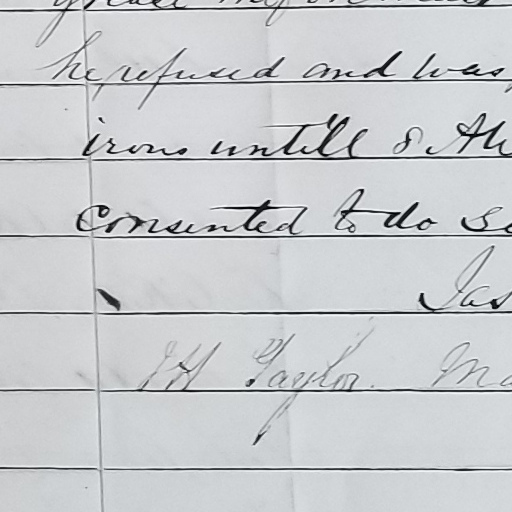 he refused and was
irons untill 8 AM
consented to do so
Jas
J H Taylor. Ma